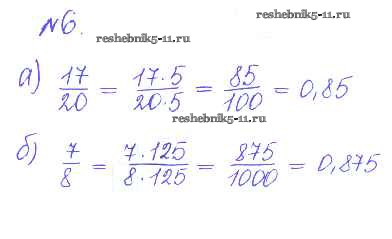 №6.
reshebnik5-11.ru
reshebnik5-11.ru
а) 17/20 = 17·5/20·5 = 85/100 = 0,85
reshebnik5-11.ru
б) 7/8 = 7·125/8·125 = 875/1000 = 0,875